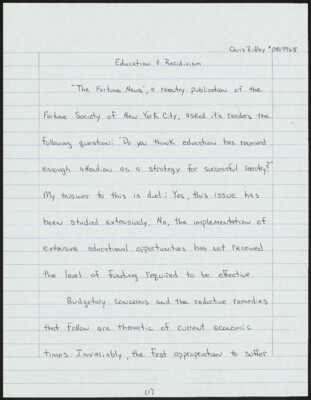 Chris Ridley
Education & Recidivism
"The Fortune News", a reentry publication of the
Fortune Society of New York City, asked its readers the
following question: "Do you think education has received
enough attention as a strategy for successful reentry?"
My answer to this is dual: Yes, this issue has
been studied extensively. No, the implementation of
extensive educational opportunities has not received
the level of funding required to be effective.
Budgetary concerns and the reductive remedies
that follow are thematic of current economic
times. Invariably, the first appropriation to suffer
(1)